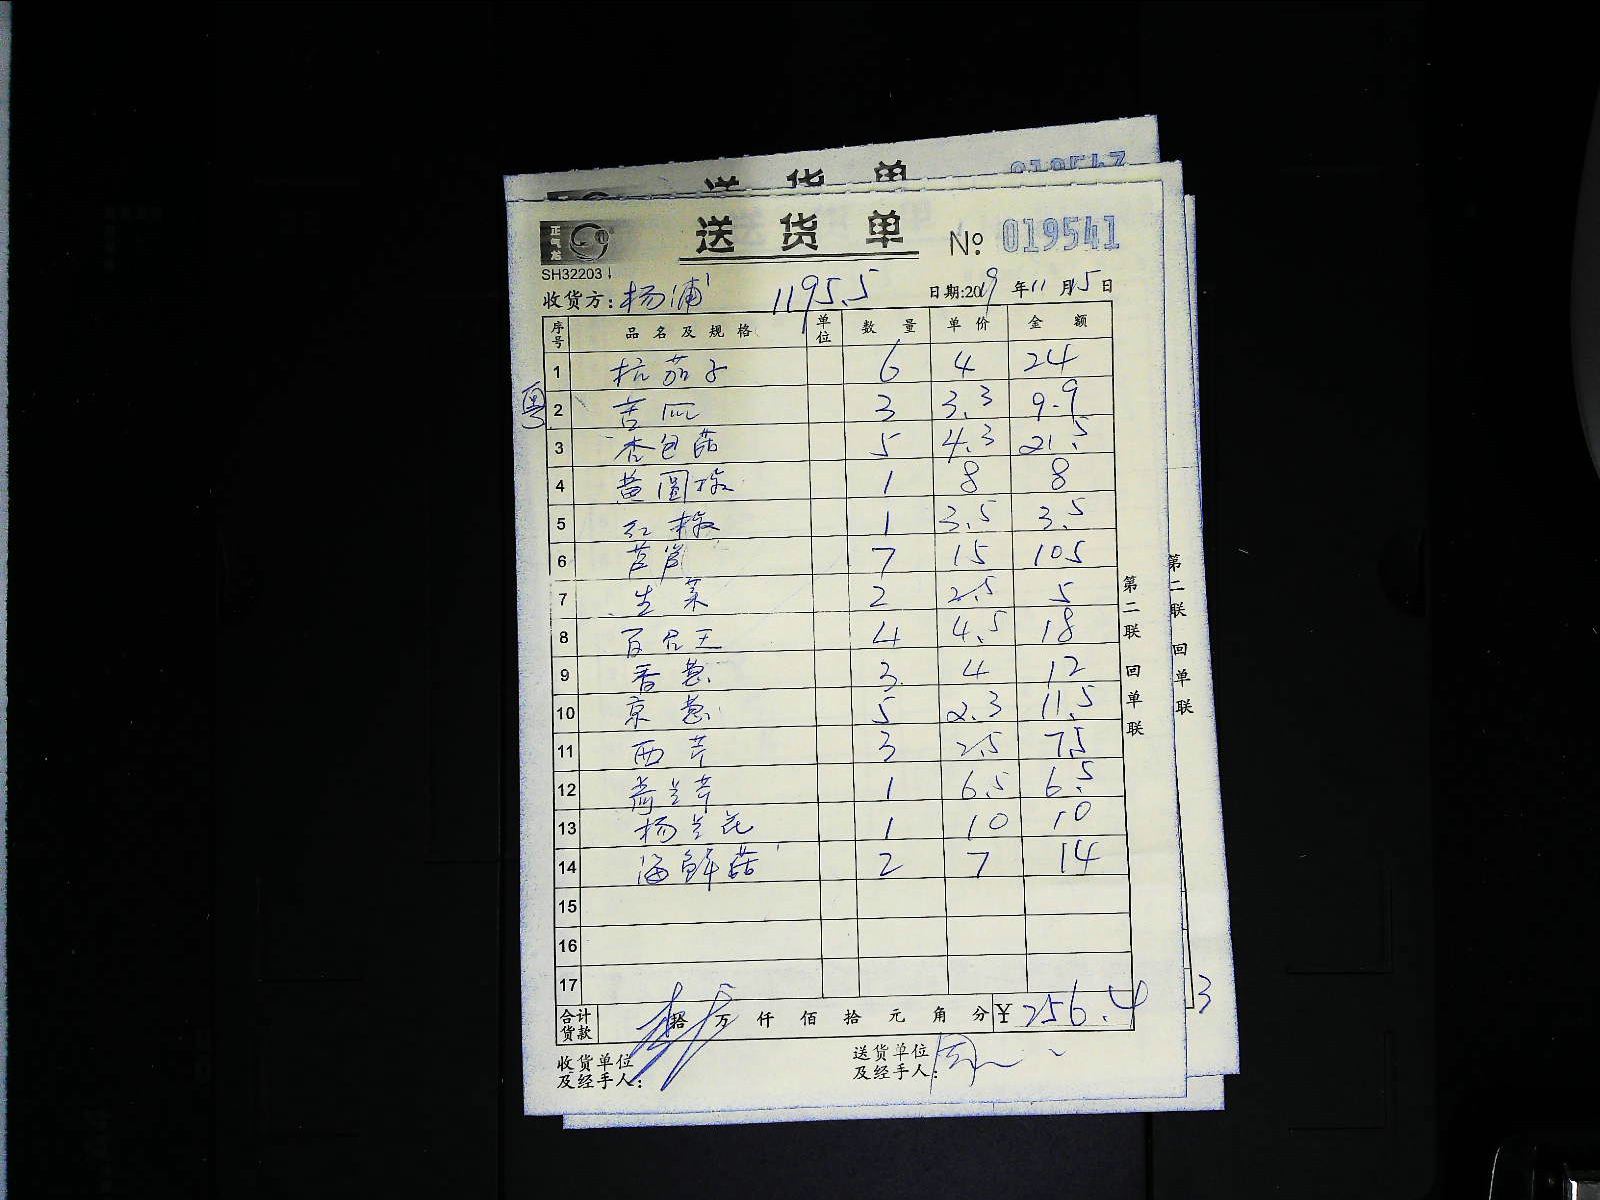 送 货 单
送 货 单 № 019541
正气龙
SH32203
收货方: 杨浦 1195.5 日期:2019 年 11 月 15 日
序号 品名及规格 单位 数量 单价 金额
粤
1 杭茄子 6 4 24
2 苦瓜 3 3.3 9.9
3 杏包菇 5 4.3 21.5
4 黄圆椒 1 8 8
5 红椒 1 3.5 3.5
6 芦笋 7 15 105
7 生菜 2 2.5 5
8 4 4.5 18
9 香葱 3 4 12
10 京葱 5 2.3 11.5
11 西芹 3 2.5 7.5
12 1 6.5 6.5
13 杨兰花 1 10 10
14 海鲜菇 2 7 14
15
16
17
合计货款 拾 万 仟 佰 拾 元 角 分 ¥ 256.4
收货单位及经手人:
送货单位及经手人:
第二联 回单联
第二联 回单联
3